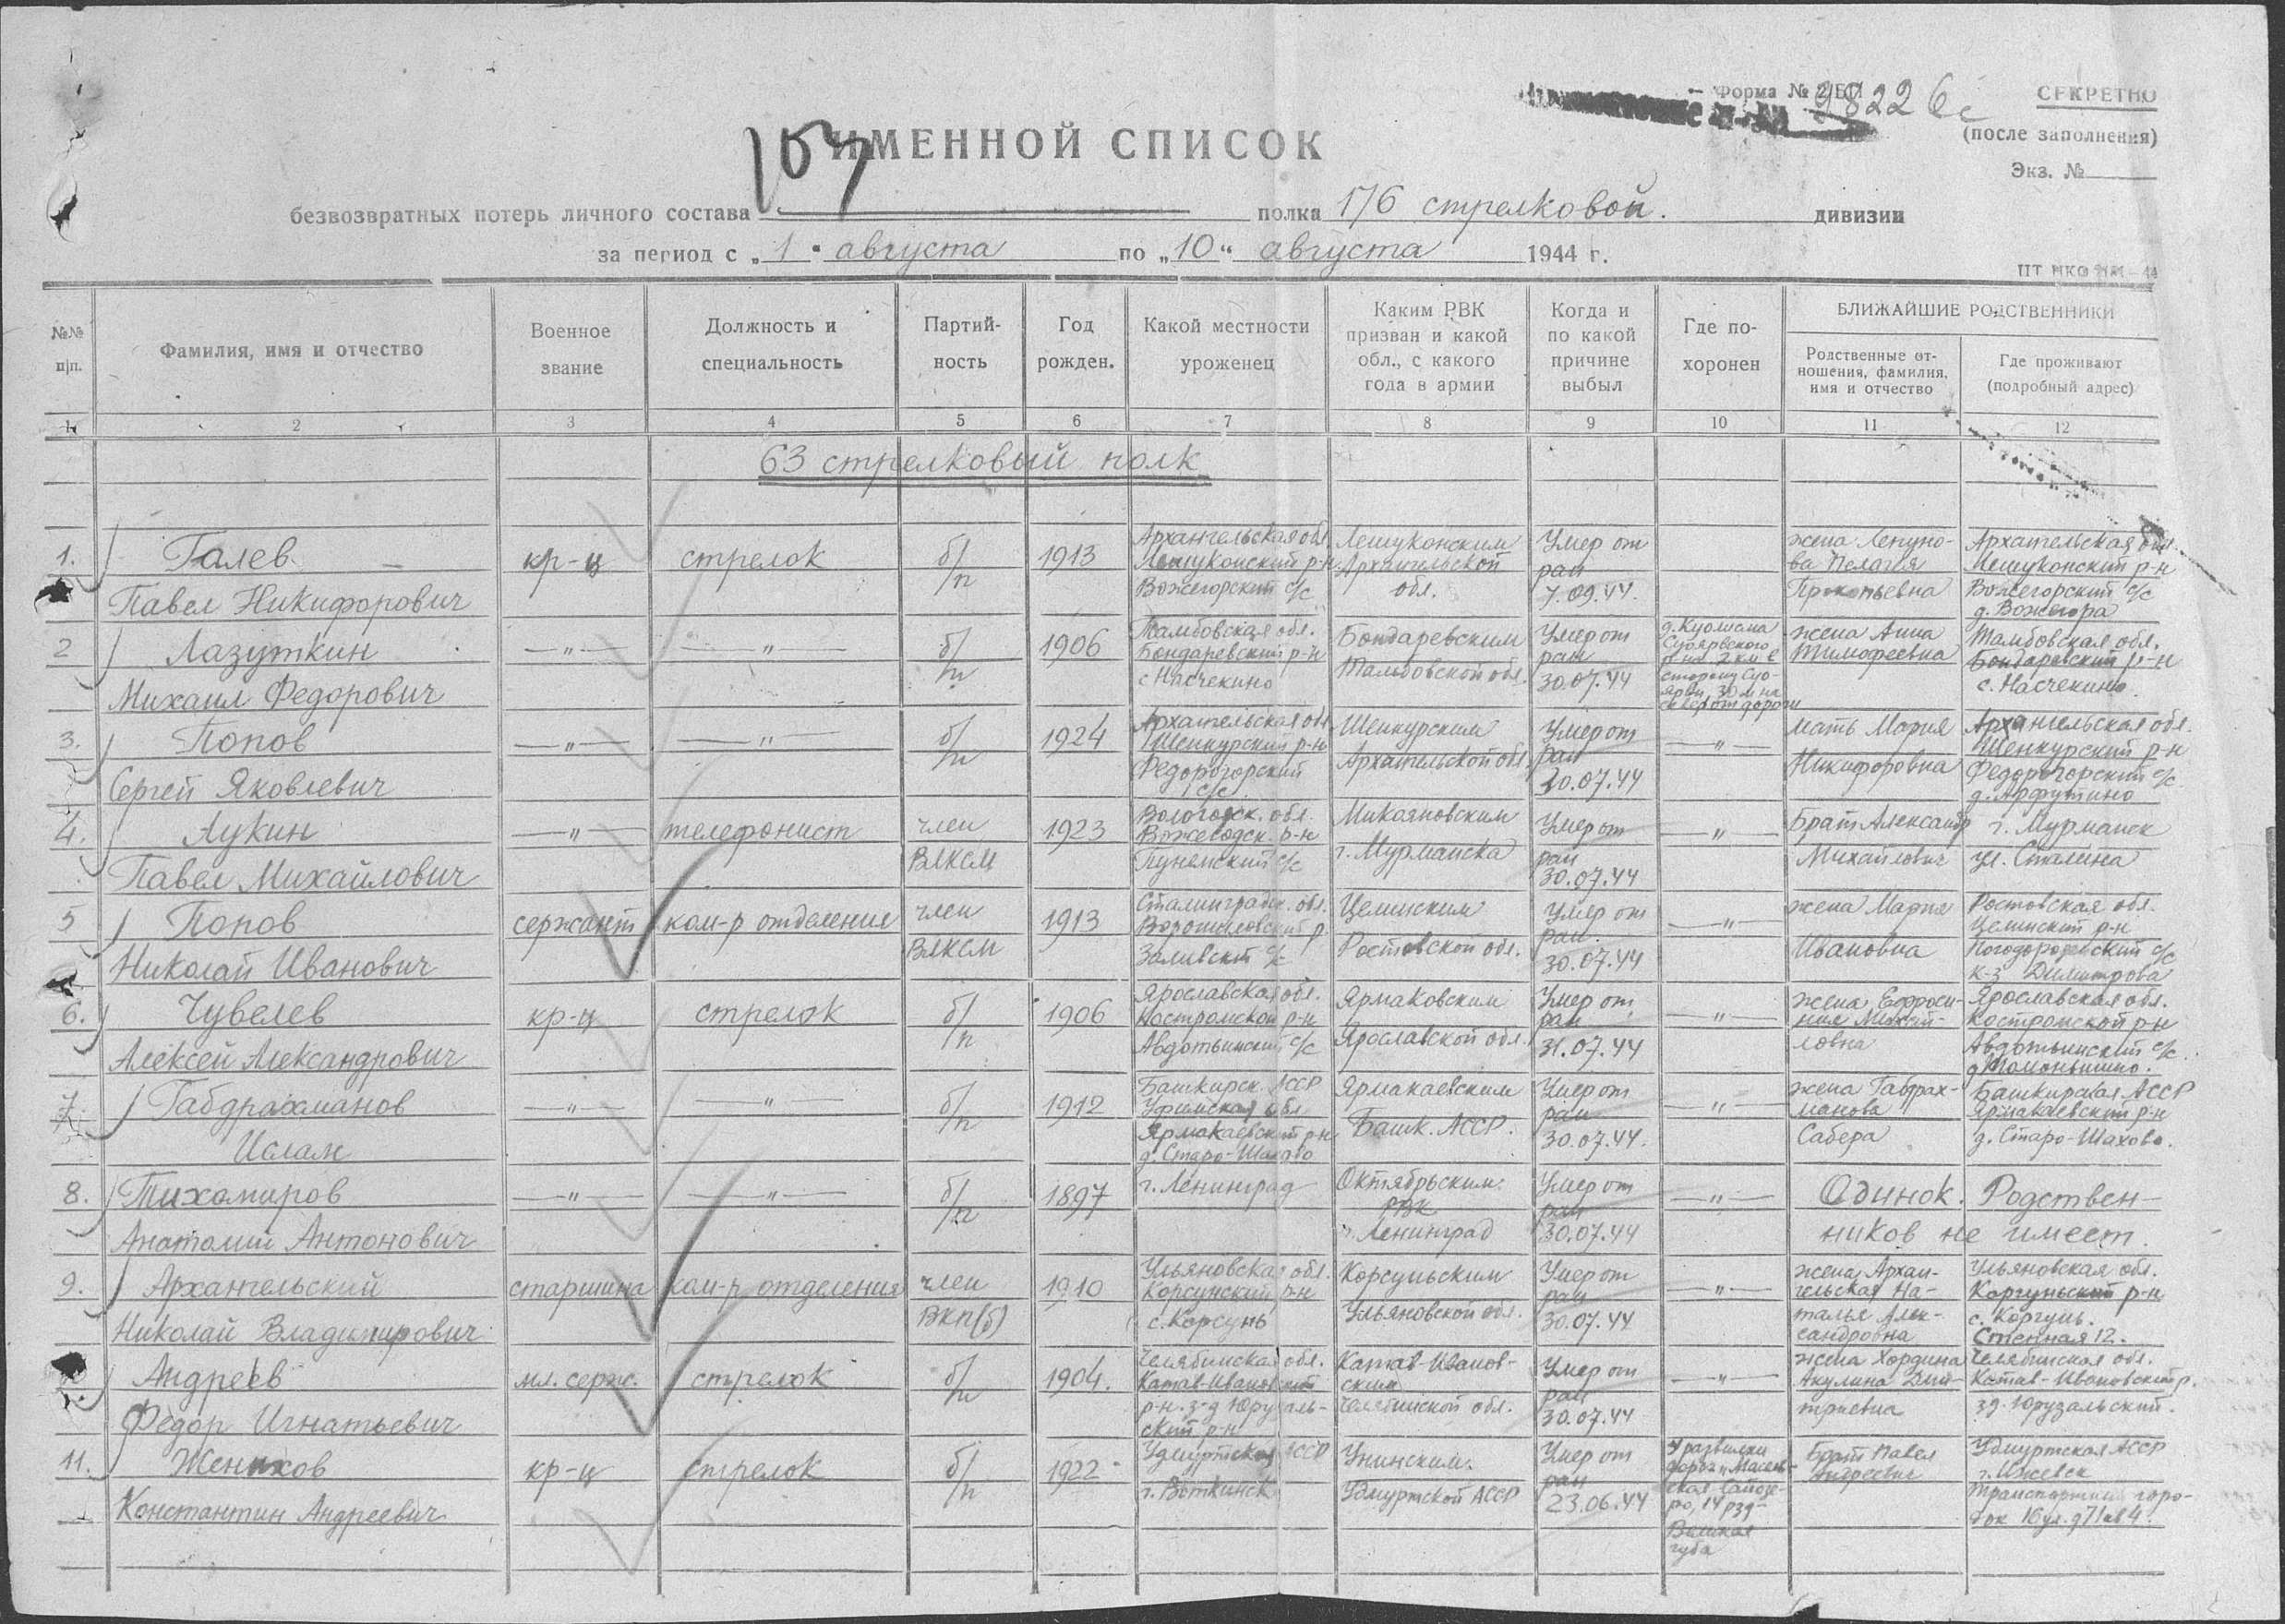 Форма № 2/БП
9822 6с
СЕКРЕТНО
(после заполнения)
Экз. №
107
ИМЕННОЙ СПИСОК
безвозвратных потерь личного состава полка 176 стрелковой. дивизии
за период с „1“ августа по „10“ августа 1944 г.
№№ п|п.
Фамилия, имя и отчество
Военное звание
Должность и специальность
Партий-ность
Год рожден.
Какой местности уроженец
Каким РВК призван и какой обл., с какого года в армии
Когда и по какой причине выбыл
Где по-хоронен
БЛИЖАЙШИЕ РОДСТВЕННИКИ
Родственные от-ношения, фамилия, имя и отчество
Где проживают (подробный адрес)
1 2 3 4 5 6 7 8 9 10 11 12
63 стрелковый полк
1. Галев Павел Никифорович
кр-ц стрелок б/п 1913
Архангельская обл. Лешуконский р-н Вожегорский с/с
Лешуконским Архангельской обл.
Умер от ран 7.09.44.
жена Пелагея Прокопьевна
Архангельская обл. Лешуконский р-н Вожегорский с/с д. Вожегора
2 Лазуткин Михаил Федорович
—"— —"— б/п 1906
Тамбовская обл. Бондаревский р-н с Насчекино
Бондаревским Тамбовской обл.
Умер от ран 30.07.44
Суоярвского р-на 2 км в сторону Суо-ярви, 30 м на север от дороги
жена Анна Тимофеевна
Тамбовская обл. Бондаревский р-н с. Насчекино.
3. Попов Сергей Яковлевич
—"— —"— б/п 1924
Архангельская обл. Шенкурский р-н Федорогорский с/с
Шенкурским Архангельской обл.
Умер от ран 30.07.44
—"—
мать Мария Никифоровна
Архангельская обл. Шенкурский р-н Федорогорский с/с д. Арфутино
4. Лукин Павел Михайлович
—"— телефонист член ВЛКСМ 1923
Вологодск. обл. Вожегодск. р-н Пунемский с/с
Микояновским г. Мурманска
Умер от ран 30.07.44
—"—
Брат Александр Михайлович
г. Мурманск ул. Сталина
5 Попов Николай Иванович
сержант ком-р отделения член ВЛКСМ 1913
Сталинградск. обл. Ворошиловский р Заливский с/с
Целинским Ростовской обл.
Умер от ран. 30.07.44
—"—
жена Мария Ивановна
Ростовская обл. Целинский р-н с/с к-з Димитрова
6. Чувелев Алексей Александрович
кр-ц стрелок б/п 1906
Ярославская обл. Костромской р-н Авдотьинский с/с
Ярмаковским Ярославской обл.
Умер от ран 31.07.44
—"—
жена Ефроси-ния Михай-ловна
Ярославская обл. Костромской р-н Авдотьинский с/с
7. Габдрахманов Ислам
—"— —"— б/п 1912
Башкирск. АССР Уфимская обл Ярмакаевский р-н д. Старо-Шахово
Ярмакаевским Башк. АССР.
Умер от ран 30.07.44.
—"—
жена Габдрах-манова Сабера
Башкирская АССР Ярмакаевский р-н д. Старо-Шахово.
8. Тихомиров Анатолий Антонович
—"— —"— б/п 1897
г. Ленинград
Октябрьским РВК г. Ленинград
Умер от ран 30.07.44
—"—
Одинок. Родствен-ников не имеет.
9. Архангельский Николай Владимирович
старшина ком-р отделения член ВКП(б) 1910
Ульяновская обл. Корсунский р-н с. Корсунь
Корсуньским Ульяновской обл.
Умер от ран 30.07.44
—"—
жена Архан-гельская На-талья Алек-сандровна
Ульяновская обл. Корсуньский р-н с. Корсунь. Степная 12.
Андреев Федор Игнатьевич
мл. серж. стрелок б/п 1904.
Челябинская обл. Катав-Ивановский р-н. з-д Юрузаль-ский р-н
Катав-Иванов-ским Челябинской обл.
Умер от ран 30.07.44
—"—
жена Хордина Акулина Дми-триевна
Челябинская обл. Катав-Ивановский р. зд. Юрузальский.
11. Женихов Константин Андреевич
кр-ц стрелок б/п 1922
Удмуртская АССР г. Воткинск
Унинским. Удмуртской АССР
Умер от ран 23.06.44
У развилки дорог
губа
Брат Павел Андреевич
Удмуртская АССР г. Ижевск Транспортный горо-док 16 ул. д 71 кв 4.